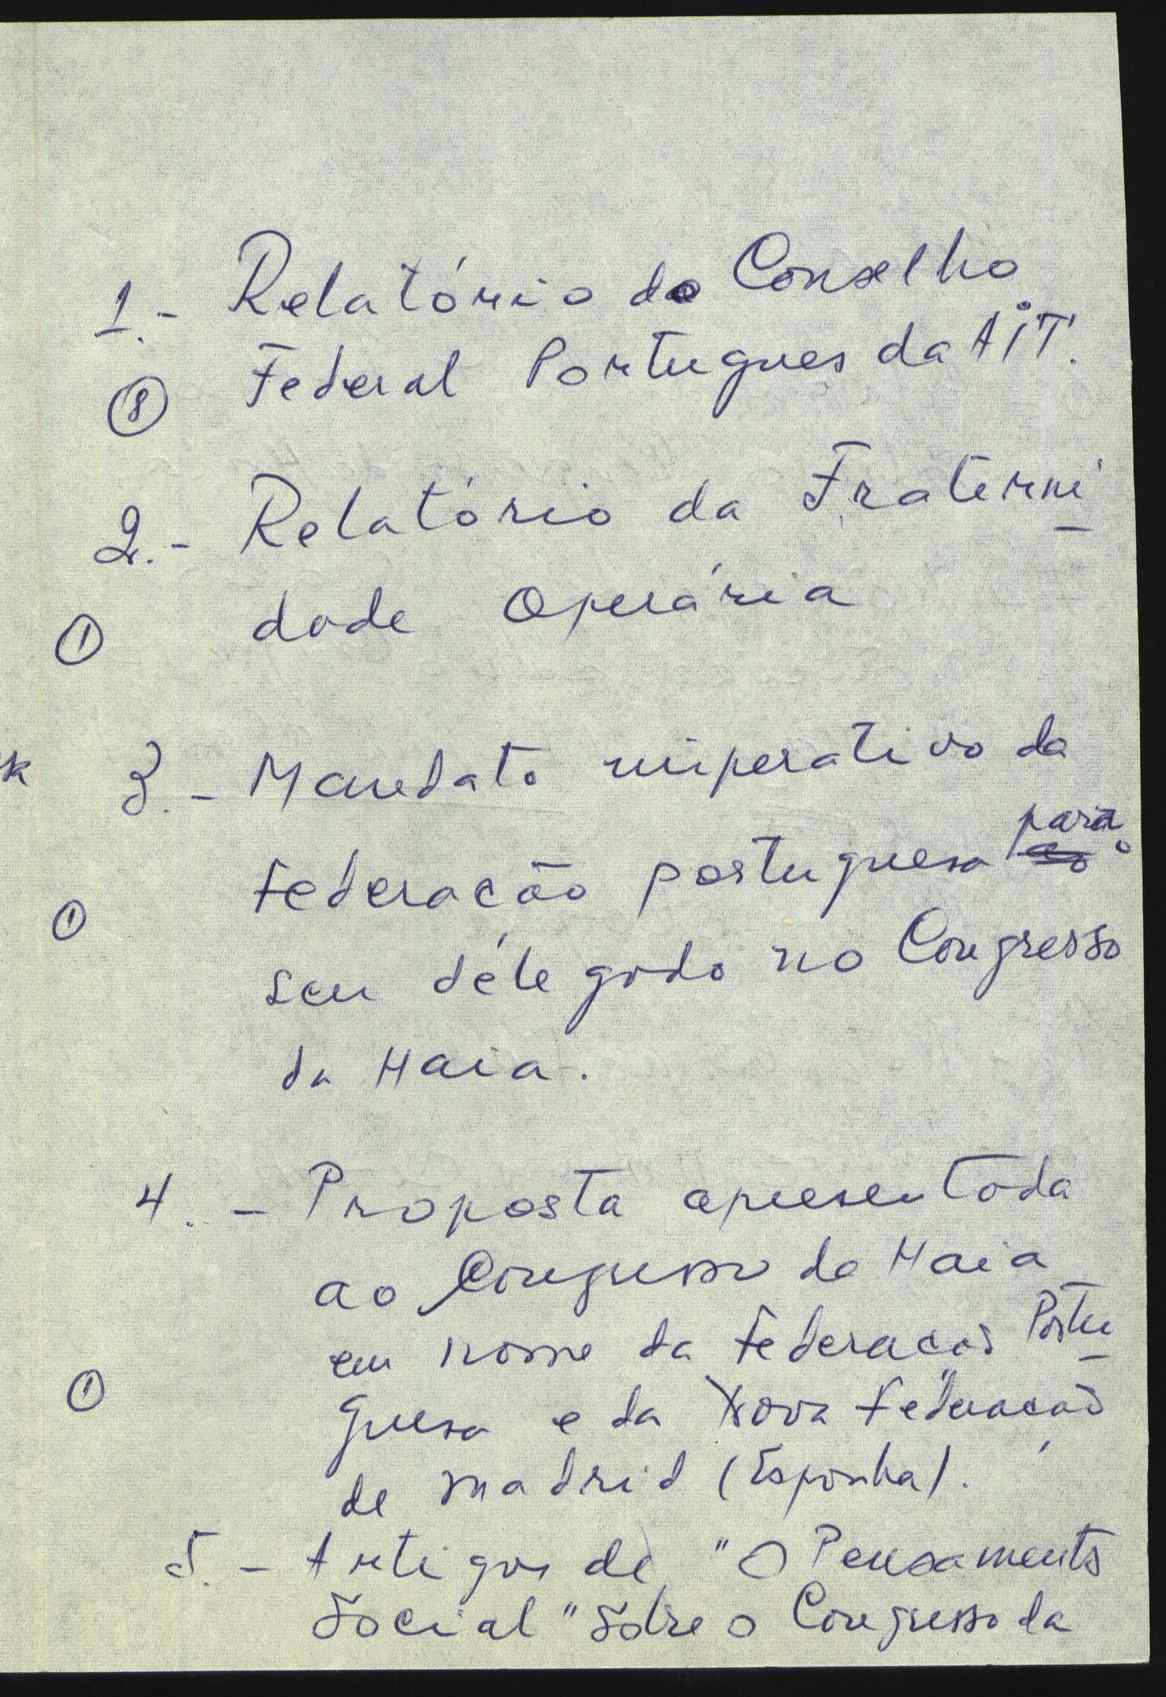 1.- Relatório do Conselho
⑧ Federal Portugues da AIT.
2.- Relatório da Fraterni
① dade Operária
3.- Mandato imperativo da
para
Federação portuguesa ao o
① seu délegado no Congresso
da Haia.
4.- Proposta apresentada
ao Congresso da Haia
em nome da Federacão Portu
① guesa e da Nova Federacão
de Madrid (Espanha).
5.- Artigos de "O Pensamento
Social" sobre o Congresso da